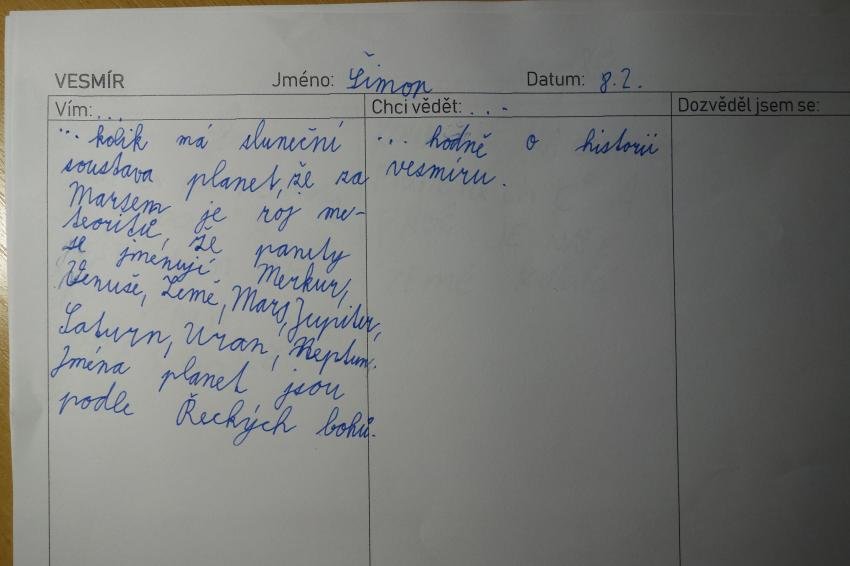 VESMÍR Jméno: Šimon Datum: 8.2.
Vím:...
...kolik má sluneční
soustava planet, že za
Marsem je roj me-
teoritů, že panety
se jmenují Merkur,
Venuše, Země, Mars, Jupiter,
Saturn, Uran, Neptun.
Jména planet jsou
podle Řeckých bohů.
Chci vědět:...
...hodně o historii
vesmíru.
Dozvěděl jsem se: